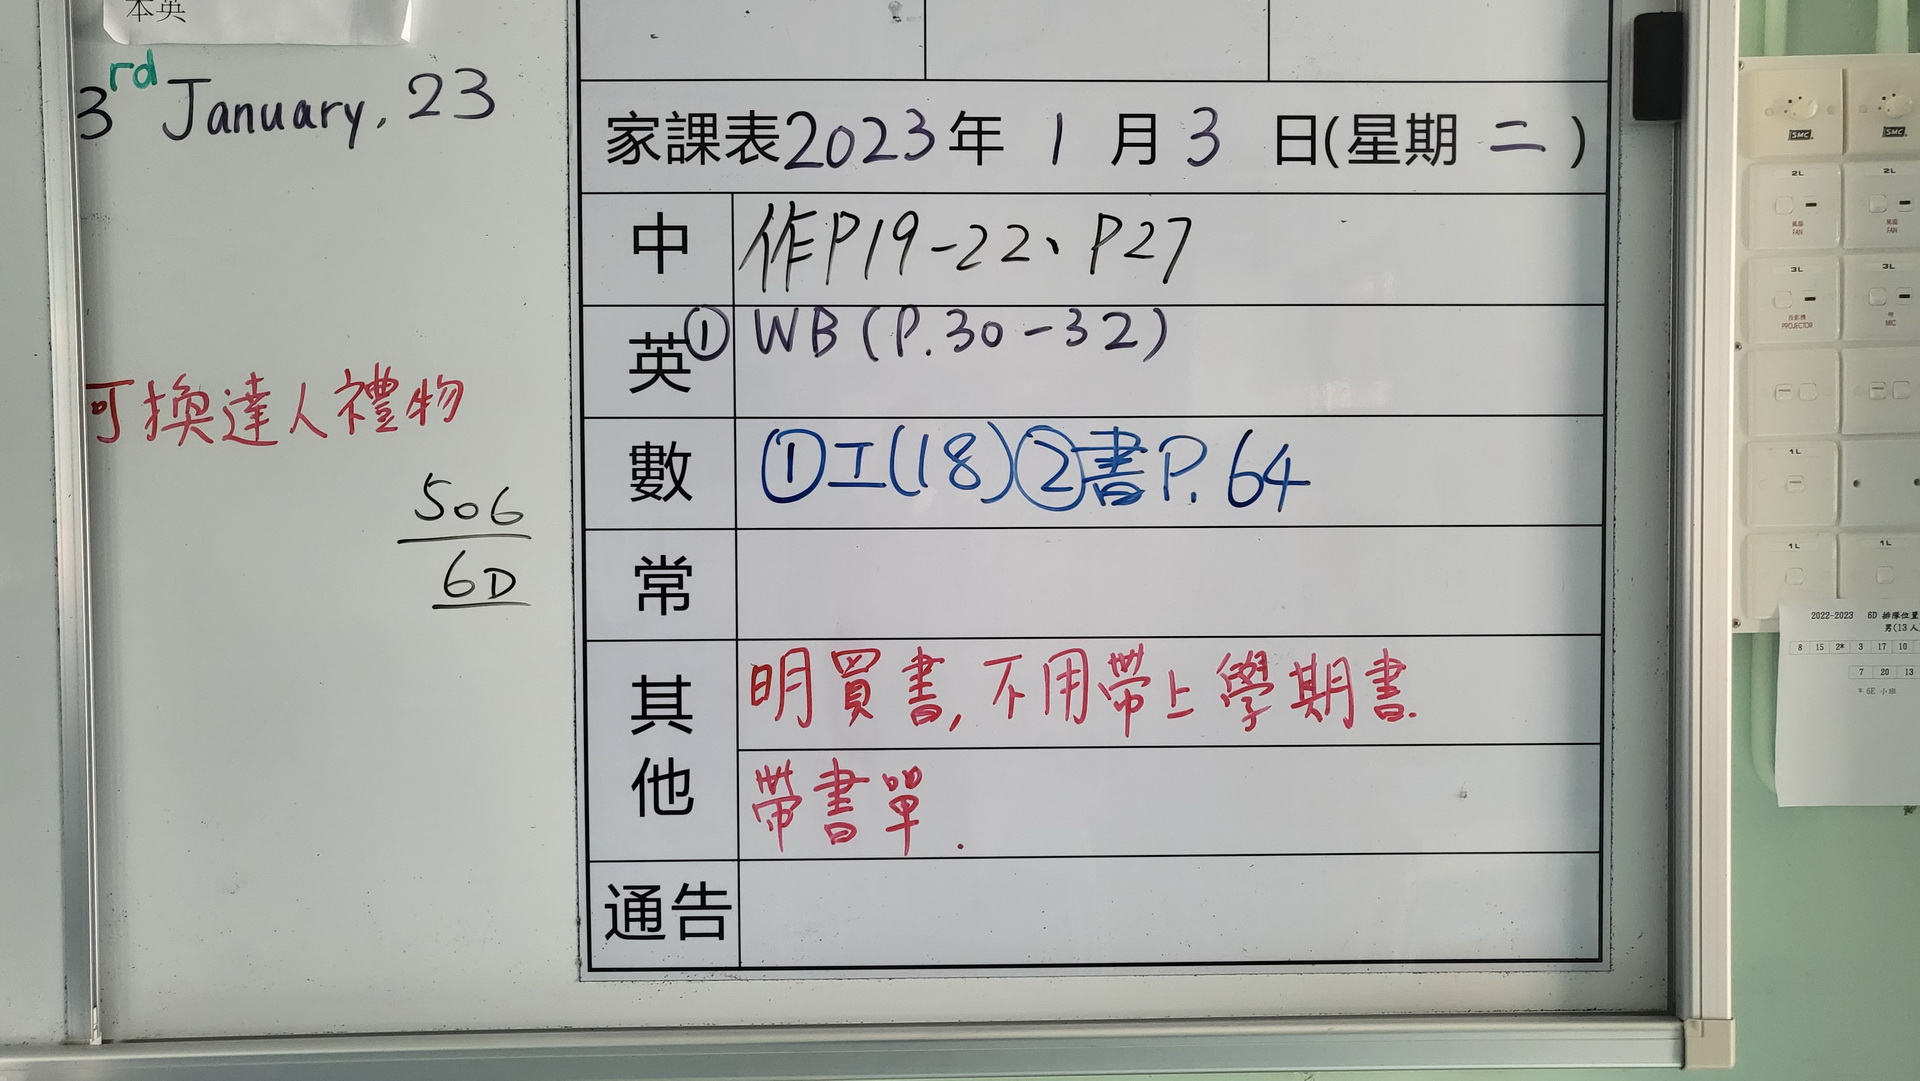 本英
3rd January, 23
可換達人禮物
506
6D
家課表2023年 1 月 3 日(星期 二 )
中 作P19-22、P27
英 ① WB (P.30-32)
數 ①工(18)②書P.64
常
其他 明買書,不用帶上學期書.
帶書單.
通告
SMC SMC
2L 2L
風扇 風扇
FAN FAN
3L 3L
PROJECTOR MIC
1L
1L 1L
2022-2023 6D 排隊位置
男(13 人
8 15 2* 3 17 10
7 20 13
* 6E 小班